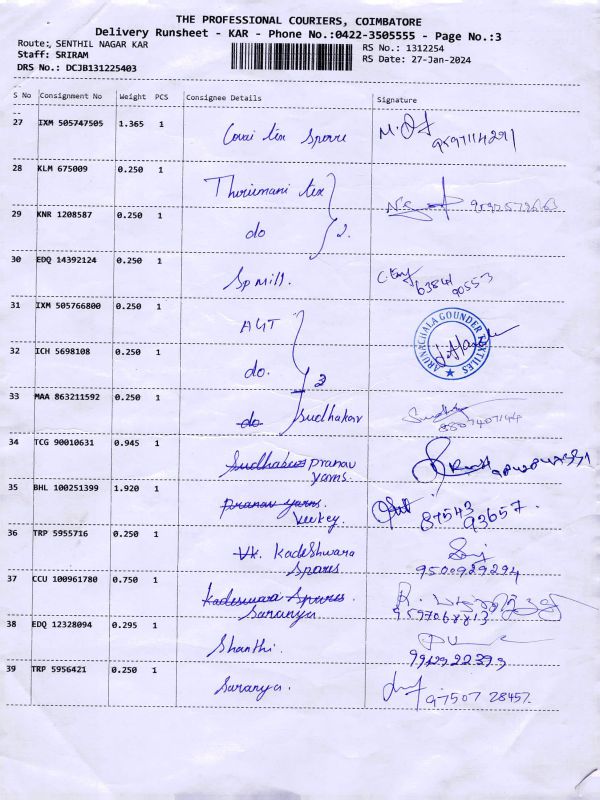 THE PROFESSIONAL COURIERS, COIMBATORE
Delivery Runsheet - KAR - Phone No.:0422-3505555 - Page No.:3
Route: SENTHIL NAGAR KAR
Staff: SRIRAM
DRS No.: DCJB131225403
RS No.: 1312254
RS Date: 27-Jan-2024
S No Consignment No Weight PCS Consignee Details Signature
27 IXM 505747505 1.365 1
28 KLM 675009 0.250 1 Thirumani tex
29 KNR 1208587 0.250 1 do 2.
30 EDQ 14392124 0.250 1 Sp mill.
31 IXM 505766800 0.250 1 AGT
32 ICH 5698108 0.250 1 do. 2
ARUNACHALA GOUNDER TEXTILES
33 MAA 863211592 0.250 1 do Sudhakar 8807407144
34 TCG 90010631 0.945 1 Sudhakar pranav
yarns.
35 BHL 100251399 1.920 1 pranav yarns. 87543
veekey. 93657.
36 TRP 5955716 0.250 1 Vk. Kadeshwara
Spares 9500929294
37 CCU 100961780 0.750 1 kadeswara Spares.
Saranya.
38 EDQ 12328094 0.295 1 Shanthi.
39 TRP 5956421 0.250 1 Saranya. 97507 28457.